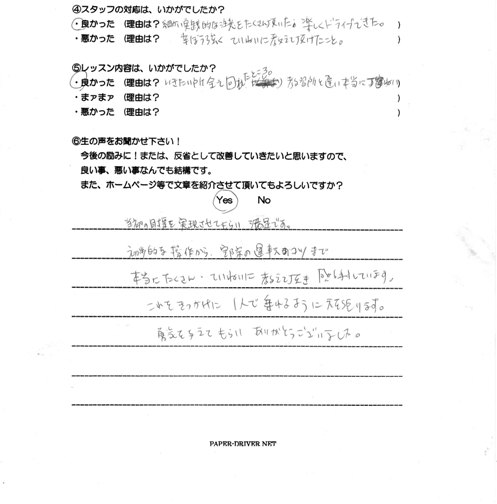 ④スタッフの対応は、いかがでしたか?
・良かった (理由は? 細かい実践的な注意をたくさん頂いた。楽しくドライブできた。 )
・悪かった (理由は? 辛ぼう強く ていねいに教えて頂けたこと。 )
⑤レッスン内容は、いかがでしたか?
・良かった (理由は? いきたい所は全て回れたところ。 ) 教習所と違い本当に丁寧
・まァまァ (理由は? )
・悪かった (理由は? )
⑥生の声をお聞かせ下さい!
今後の励みに!または、反省として改善していきたいと思いますので、
良い事、悪い事なんでも結構です。
また、ホームページ等で文章を紹介させて頂いてもよろしいですか?
Yes No
当初の目標を実現させてもらい 満足です。
初歩的な操作から、実際の運転のコツまで
本当にたくさん・ていねいに 教えて頂き 感謝しています。
これをきっかけに 1人で乗れるように 頑張ります。
勇気を与えてもらい ありがとうございました。
PAPER-DRIVER NET